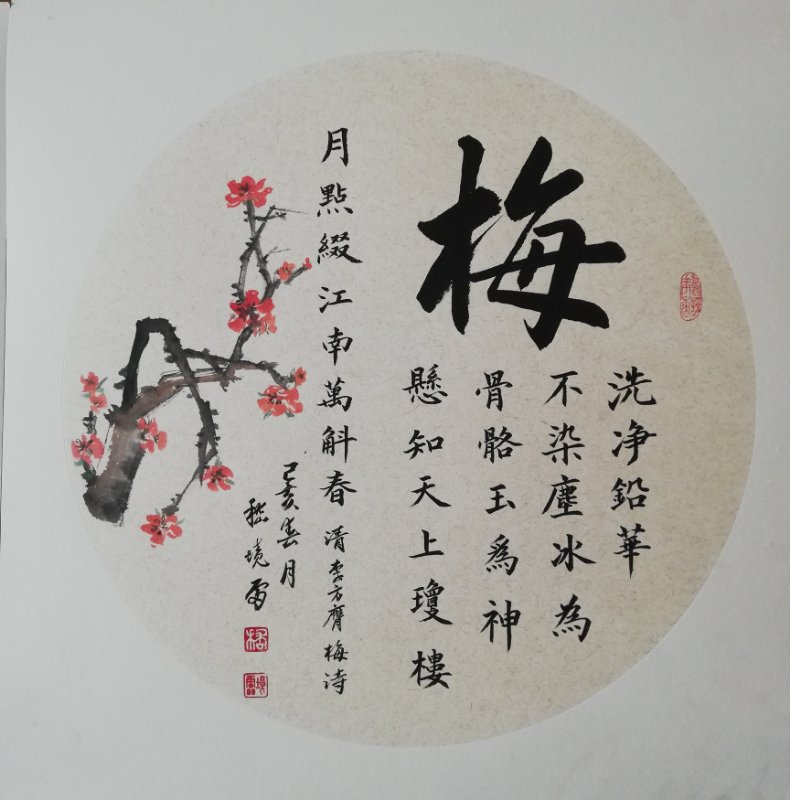 梅
洗净鉛華
不染塵冰為
骨骼玉爲神
懸知天上瓊樓
月點綴江南萬斛春 清李方膺梅诗
己亥春月
嵇境雷